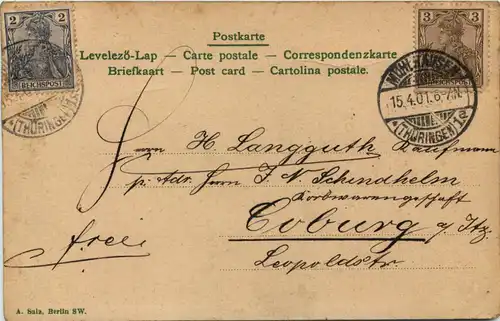 Postkarte
Levelező-Lap — Carte postale — Correspondenzkarte
Briefkaart — Post card — Cartolina postale.
2 2
REICHSPOST
(THÜRINGEN)
3 3
REICHSPOST
MÜHLHAUSEN
15.4.01.6-7N.
*(THÜRINGEN)1a
Herrn H. Langguth, Kaufmann
p. Adr. Herrn J. N. Schindhelm
Korbwarengeschäft
Coburg a/Itz.
frei
Leopoldstr.
A. Salz, Berlin SW.